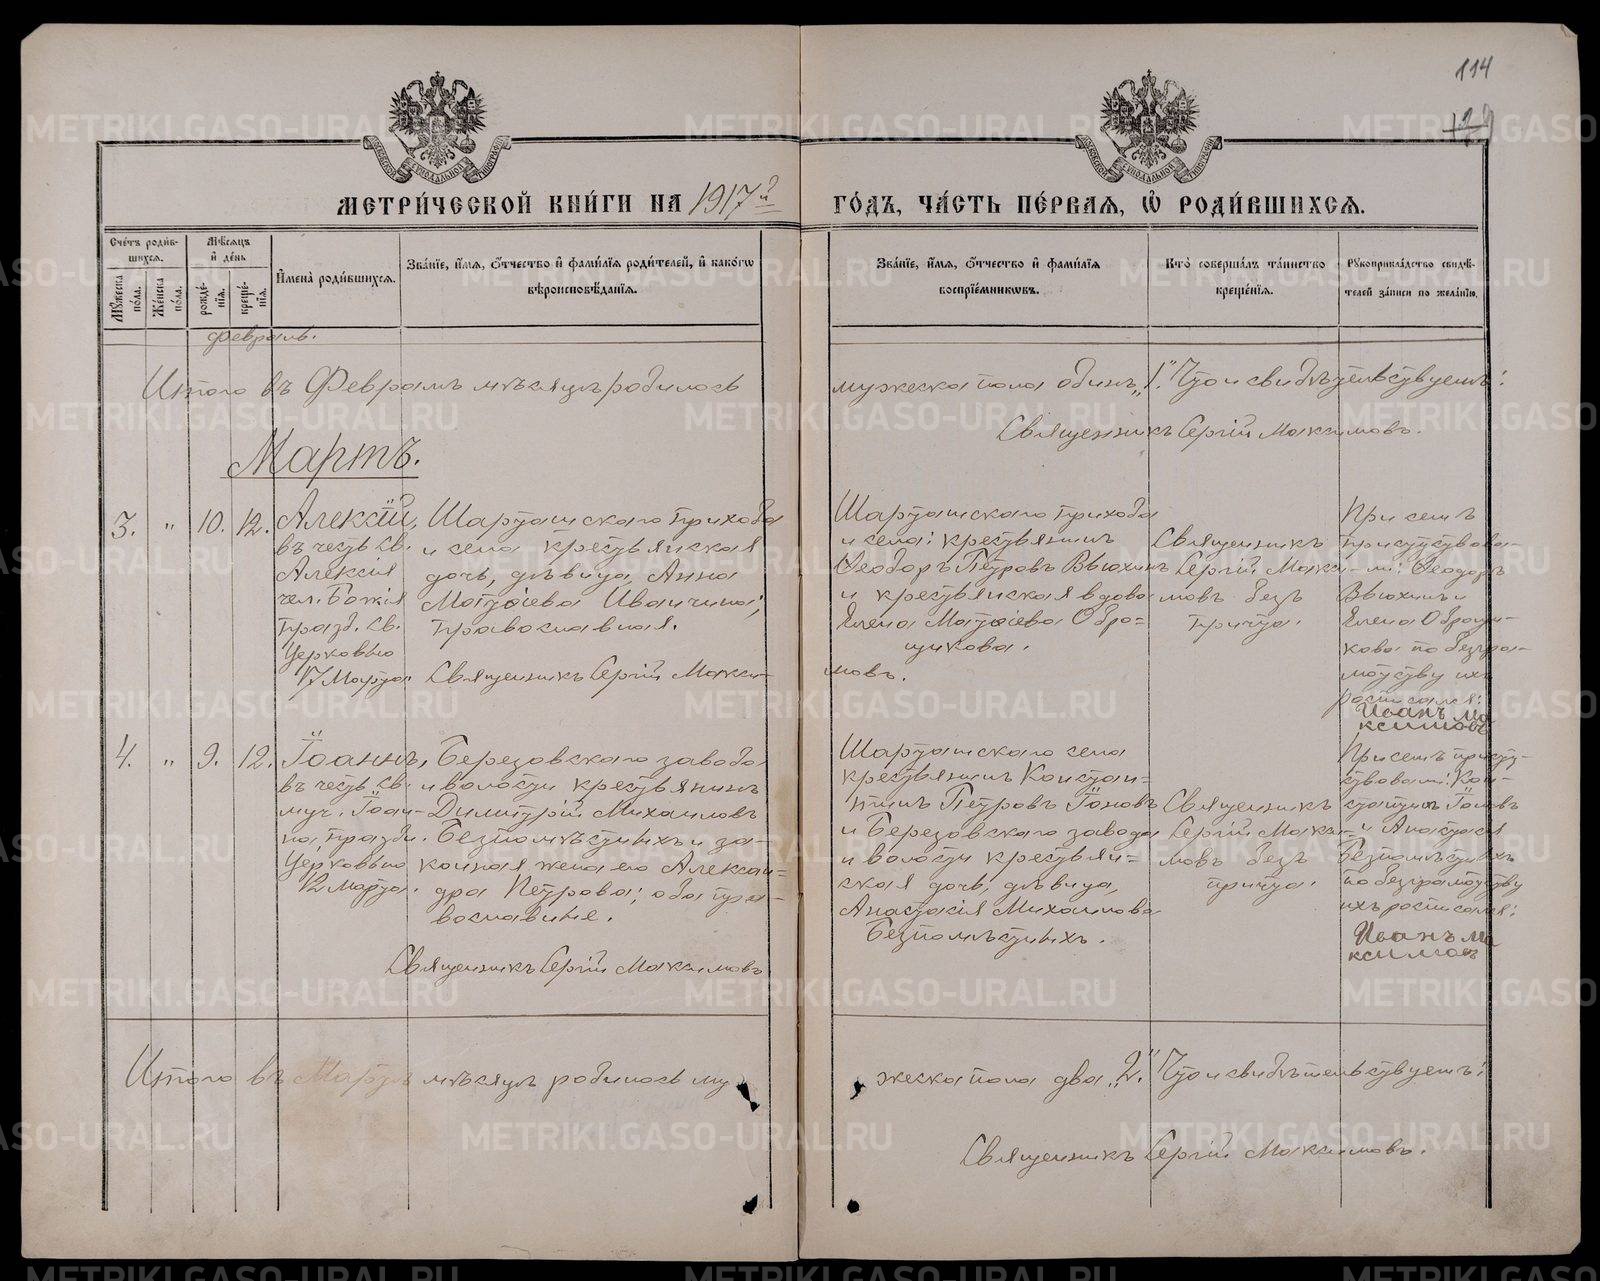 114
МЕТРИ́ЧЕСКОЙ КНИ́ГИ НА 1917й ГО́ДЪ, ЧА́СТЬ ПЕ́РВАЯ, Ѡ РОДИ́ВШИХСЯ.
Сче́тъ роди́в-
шихся.
Мꙋ́жеска по́ла.
Же́нска по́ла.
Мѣ́сяцъ и҆ де́нь
рожде́-
нїя.
креще́-
нїя.
И҆мена̀ роди́вшихся.
Зва́нїе, и҆́мя, ѻ҆́тчество и҆ фами́лїя роди́телей, и҆ како́гѡ
вѣроисповѣ́данїя.
Зва́нїе, и҆́мя, ѻ҆́тчество и҆ фами́лїя
воспрїе́мникѡвъ.
Кто̀ соверша́лъ та́инство
креще́нїя.
Рꙋкоприкла́дство свидѣ́-
телей за́писи по жела́нїю.
Февраль.
Итого въ Февралѣ мѣсяцѣ родилось мужеска пола одинъ „1.“ Что и свидѣтельствуетъ:
Священникъ Сергій Максимовъ.
Мартъ.
3. " 10. 12.
Алексій,
въ честь св.
Алексія
чел. Божія
празд. св.
Церковью
17 Марта.
Шарташскаго прихода
и села крестьянская
дочь, дѣвица, Анна
Матѳіева Иванчина;
православная.
Священникъ Сергій Макси-
мовъ.
Шарташскаго прихода
и села: крестьянинъ
Ѳеодоръ Петровъ Вьюхинъ
и крестьянская вдова
Елена Матѳіева Обро-
щикова.
Священникъ
Сергій Макси-
мовъ безъ
причта.
При семъ
присутствова-
ли: Ѳеодоръ
Вьюхинъ и
Елена Оброщи-
кова по безгра-
мотству ихъ
росписался:
Иванъ Ма
ксимовъ
4. " 9. 12.
Іоаннъ,
въ честь св.
муч. Іоан-
на, праздн.
Церковью
12 марта.
Березовскаго завода
и волости крестьянинъ
Димитрій Михаиловъ
Безпомѣстныхъ и за-
конная жена его Алексан-
дра Петрова; оба пра-
вославные.
Священникъ Сергій Максимовъ
Шарташскаго села
крестьянинъ Констан-
тинъ Петровъ Іоновъ
и Березовскаго завода
и волости крестьян-
ская дочь, дѣвица,
Анастасія Михаилова
Безпомѣстныхъ.
Священникъ
Сергій Макси-
мовъ безъ
причта.
При семъ присут-
ствовали: Кон-
стантинъ Іоновъ
и Анастасія
Безпомѣстныхъ
по безграмотству
ихъ росписался:
Иванъ Ма
ксимовъ
Итого въ Мартѣ мѣсяцѣ родилось мужеска пола два „2.“ Что и свидѣтельствуетъ:
Священникъ Сергій Максимовъ.
METRIKI.GASO-URAL.RU